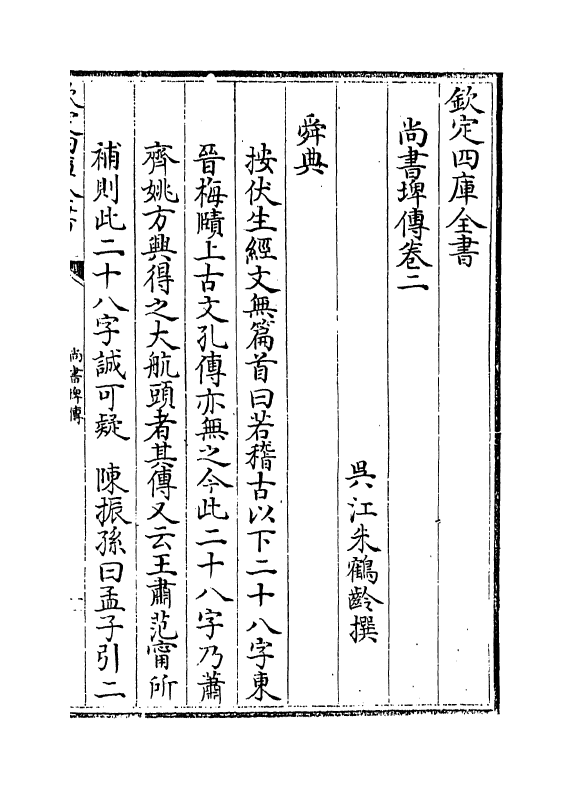 欽定四庫全書
尚書埤傳卷二
吳江朱鶴齡撰
舜典
按伏生經文無篇首曰若稽古以下二十八字東
晉梅賾上古文孔傳亦無之今此二十八字乃蕭
齊姚方興得之大航頭者其傳又云王肅范甯所
補則此二十八字誠可疑　陳振孫曰孟子引二
欽定四庫全書
尚書埤傳